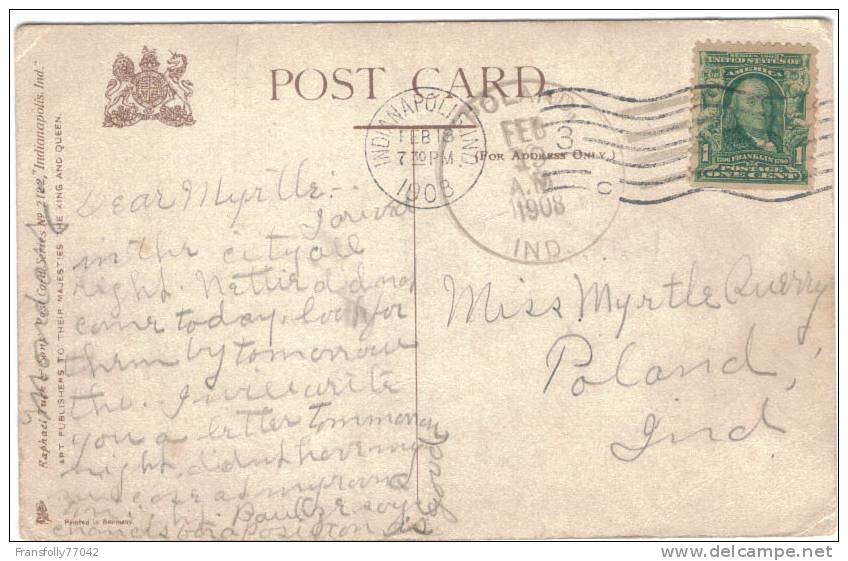 POST CARD
(FOR ADDRESS ONLY.)
INDIANAPOLIS, IND.
FEB 18
7 30 PM
1908
POLAND,
FEB
19
A.M.
1908
IND.
3
C
SERIES 1902
UNITED STATES OF
AMERICA
1 FRANKLIN 1
POSTAGE
ONE CENT
Raphael Tuck & Sons' Post Card Series No. 2122, "Indianapolis, Ind."
ART PUBLISHERS TO THEIR MAJESTIES THE KING AND QUEEN.
Printed in Germany.
Dear Myrtle:-
I arived
in the city all
right. Nettie did not
come today, look for
them by tomorrow
the. I will write
you a letter tommorrow
night, didn't have much
Paul
chancis for a position
good
Miss Myrtle Querry
Poland,
Ind.
Fransfolly77042
DELCAMPE.NET